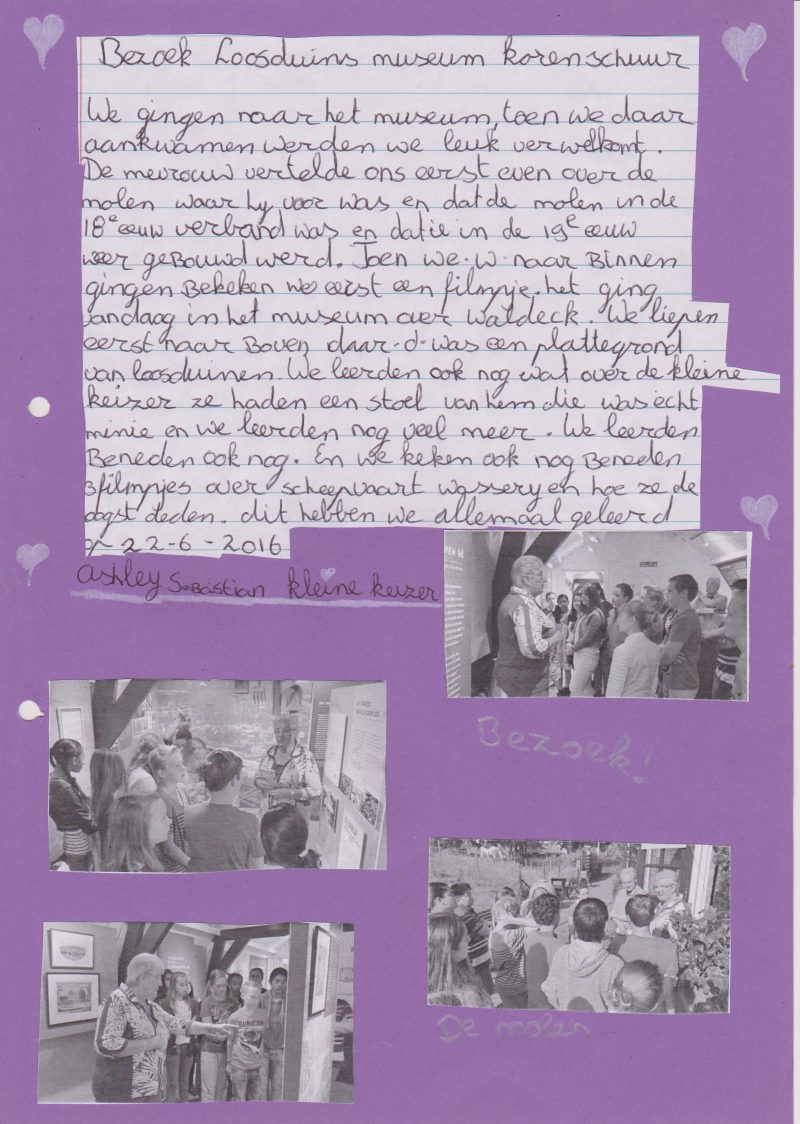 Bezoek Loosduins museum korenschuur
We gingen naar het museum, toen we daar
aankwamen werden we leuk verwelkomt.
De mevrouw vertelde ons eerst even over de
molen waar hy voor was en dat de molen in de
18e eeuw verbrand was en dat ie in de 19e eeuw
weer geBouwd werd. Toen we.w.naar Binnen
gingen Bekeken we eerst een filmpje. het ging
vandaag in het museum over Waldeck. We liepen
eerst naar Boven daar.d.was een plattegrond
van loosduinen. We leerden ook nog wat over de kleine
keizer ze haden een stoel van hem die was echt
minie en we leerden nog veel meer. We leerden
Beneden ook nog. En we keken ook nog Beneden
3 filmpjes over scheepvaart wassery en hoe ze de
oogst deden. dit hebben we allemaal geleerd
op 22-6-2016
Ashley Sebastian kleine keizer
Bezoek!
De molen